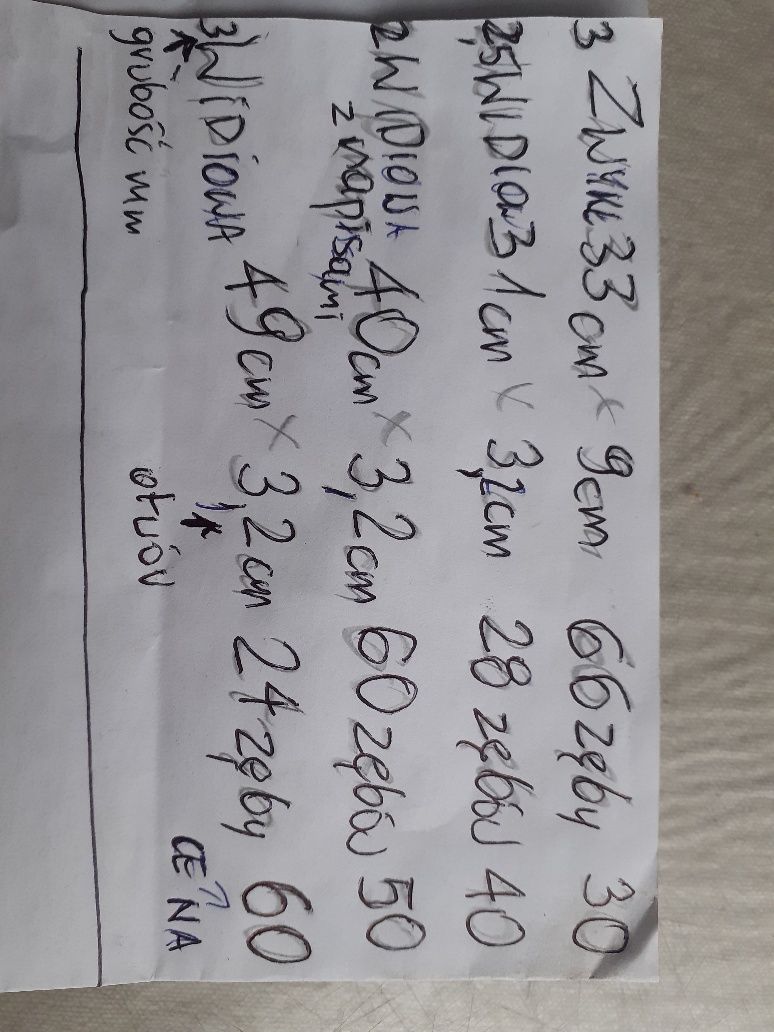 3 ZWYKŁ 33 cm x 9cm 66 zęby 30
2,5 WIDIOW 31 cm x 3,2cm 28 zębów 40
2 WIDIOWA 40cm x 3,2cm 60 zębów 50
z napisami
3 WIDIOWA 49cm x 3,2cm 24 zęby 60
grubość mm otwór CENA